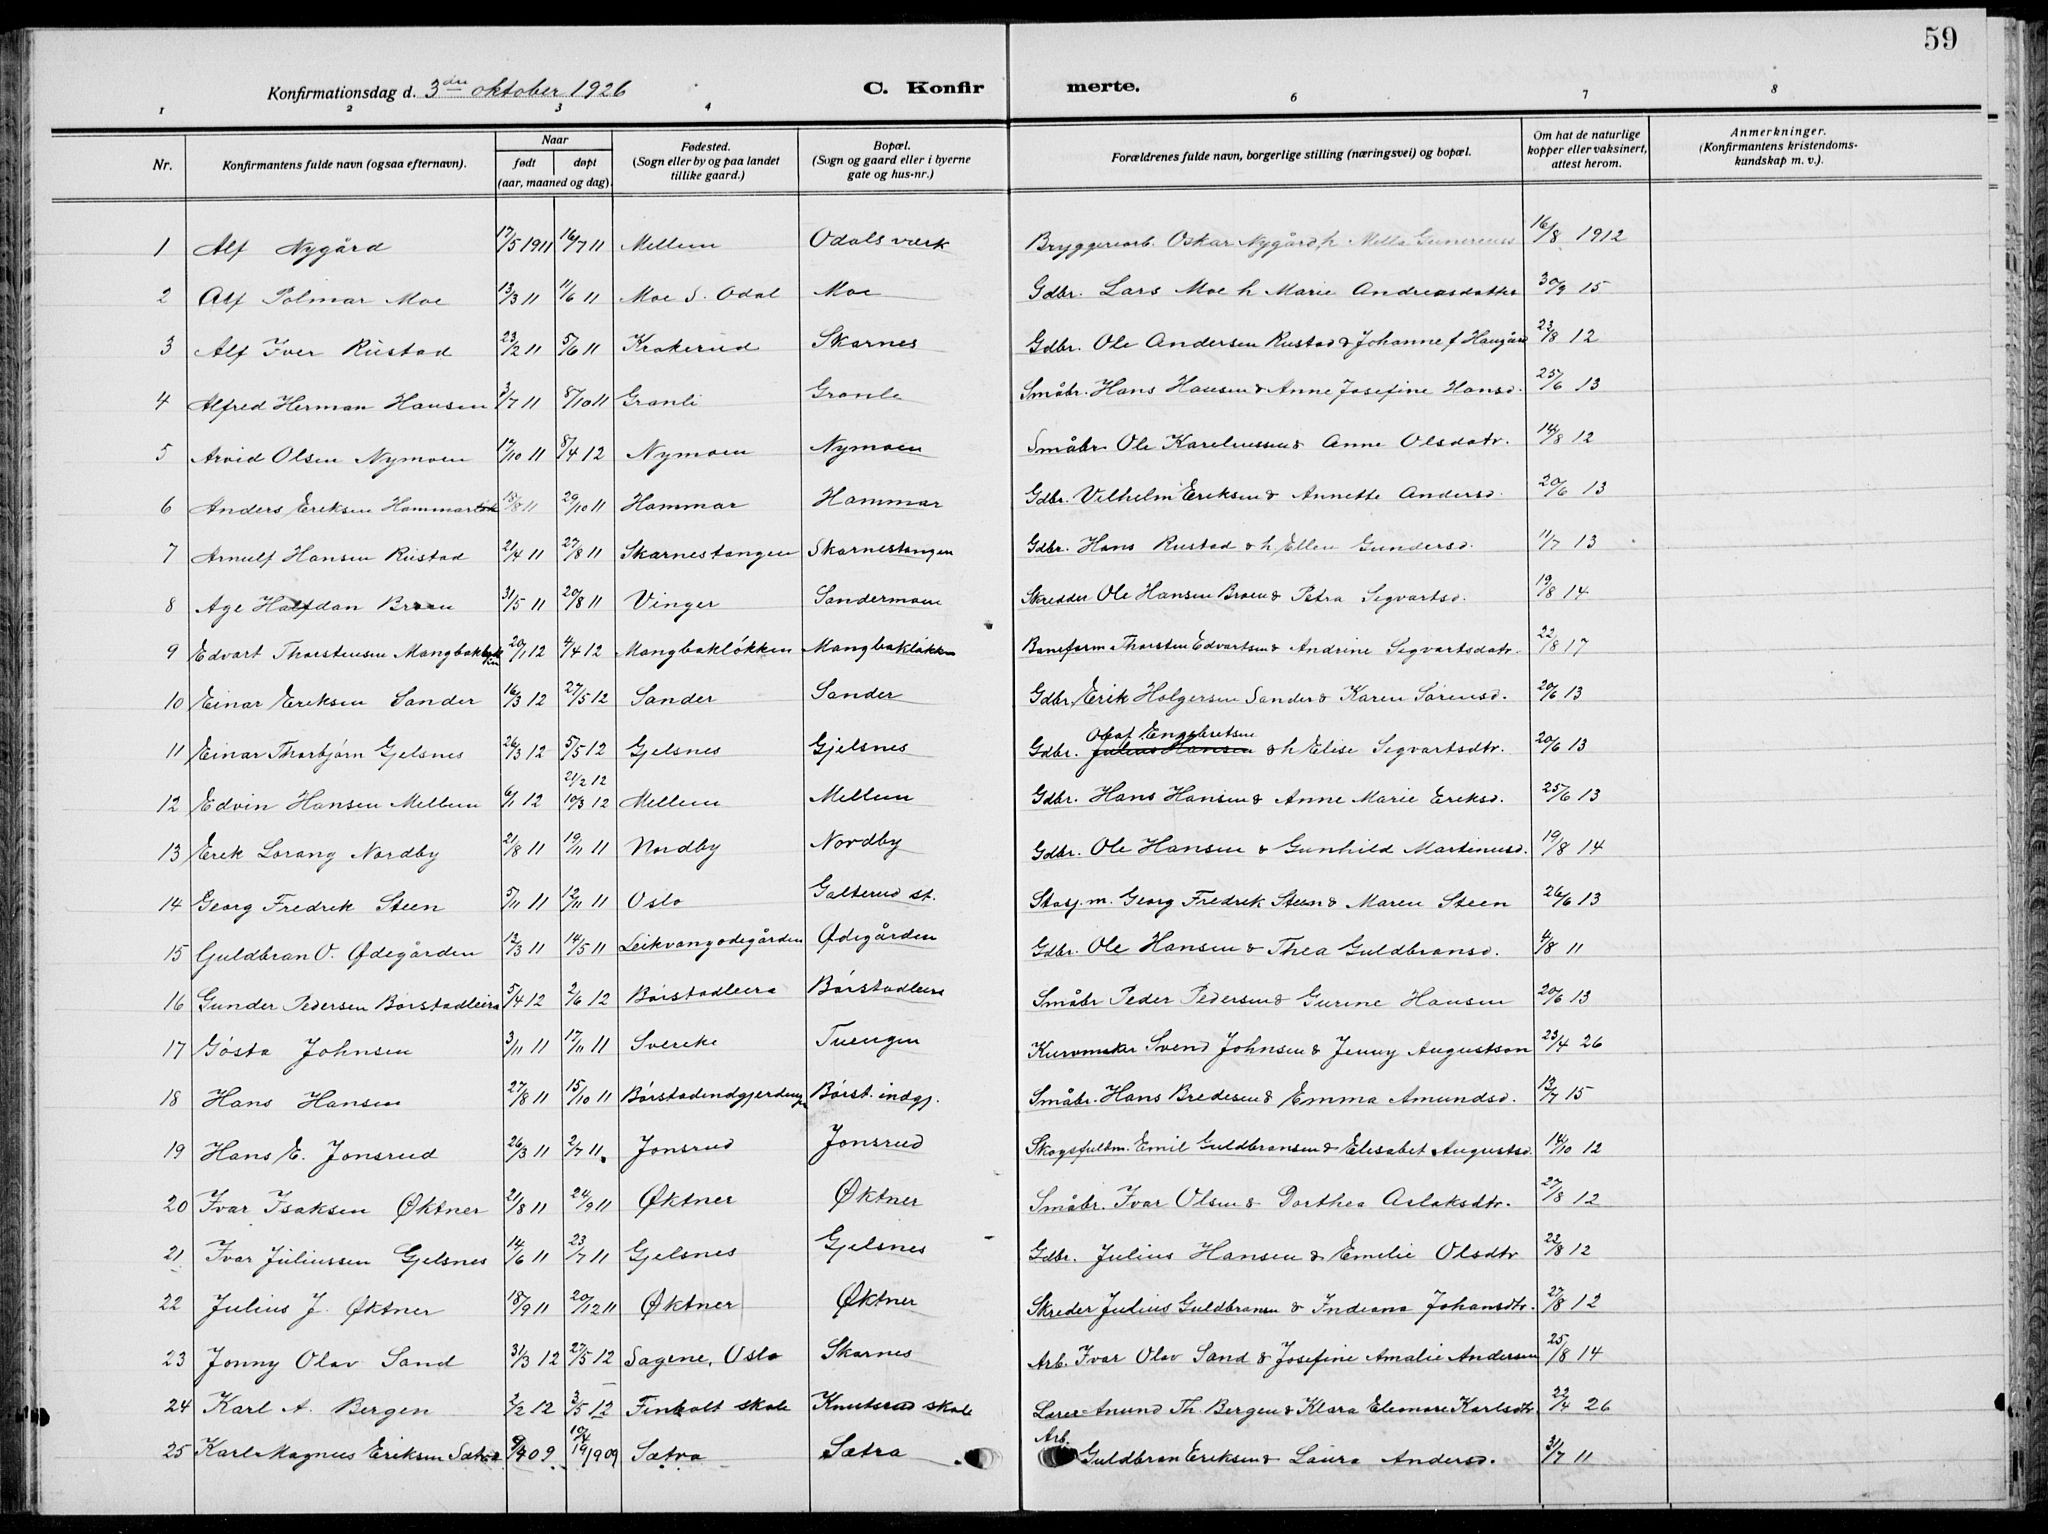 59
Konfirmationsdag d. 3die oktober 1926 C. Konfir merte.
1 2 3 4 6 7 8
Nr. Konfirmantens fulde navn (ogsaa efternavn). Naar født døpt (aar, maaned og dag). Fødested. (Sogn eller by og paa landet tillike gaard.) Bopæl. (Sogn og gaard eller i byerne gate og hus-nr.) Forældrenes fulde navn, borgerlige stilling (næringsvei) og bopæl. Om hat de naturlige kopper eller vaksinert, attest herom. Anmerkninger. (Konfirmantens kristendoms-kundskap m. v.).
1 Alf Nygård 17/5 1911 16/7 11 Mellem Odals værk Bryggeriarb. Oskar Nygård, h Mella 16/8 1912
2 Alf Polmar Moe 13/3 11 11/6 11 Moe S. Odal Moe Gdbr. Lars Moe h Marie Andreasdatter 30/9 15
3 Alf Iver Rustad 23/2 11 5/6 11 Krokerud Skarnes Gdbr. Ole Andersen Rustad & Johanne f Haugård 23/8 12
4 Alfred Herman Hansen 3/7 11 8/10 11 Granli Granli Småbr. Hans Hansen & Anne Josefine Hansd. 25/6 13
5 Arvid Olsen Nymoen 17/10 11 8/4 12 Nymoen Nymoen Småbr. Ole Kareliussen & Anne Olsdatr. 14/8 12
6 Anders Eriksen Hammar 15/8 11 29/10 11 Hammar Hammar Gdbr. Vilhelm Eriksen & Annette Andersd. 20/6 13
7 Arnulf Hansen Rustad 21/4 11 27/8 11 Skarnestangen Skarnestangen Gdbr. Hans Rustad & h Ellen Gundersd. 11/7 13
8 Age Halfdan Braen 31/5 11 20/8 11 Vinger Sandermoen Skredder Ole Hansen Braen & Petra Sigvartsd. 19/8 14
9 Edvart Thorstensen Mangbakløkken 20/1 12 4/4 12 Mangbakløkken Mangbakløkken Baneform. Thorsten Edvartsen & Andrine Sigvartsdatr. 22/8 17
10 Einar Eriksen Sander 16/3 12 27/5 12 Sander Sander Gdbr. Erik Holgersen Sander & Karen Sørensd. 20/6 13
Olaf Engebretsen
11 Einar Thorbjørn Gjelsnes 26/3 12 5/5 12 Gjelsnes Gjelsnes Gdbr. Julius Hansen & h Elise Sigvartsdtr. 20/6 13
21/2 12
12 Edvin Hansen Mellem 6/1 12 10/3 12 Mellem Mellem Gdbr. Hans Hansen & Anne Marie Eriksd. 25/6 13
13 Erik Lorang Nordby 21/8 11 19/11 11 Nordby Nordby Gdbr. Ole Hansen & Gunhild Martinusd. 19/8 14
14 Georg Fredrik Steen 5/11 11 12/11 11 Oslo Galterud st. Stasj.m. Georg Fredrik Steen & Maren Steen 26/6 13
15 Guldbran O. Ødegården 12/3 11 14/5 11 Leikvangodegården Ødegården Gdbr. Ole Hansen & Thea Guldbransd. 4/8 11
16 Gunder Pedersen Børstadleira 5/4 12 2/6 12 Børstadleira Børstadleira Småbr. Peder Pedersen & Gurine Hansen 20/6 13
17 Gøsta Johnsen 3/11 11 17/11 11 Sverike Tuengen Kurvmaker Svend Johnsen & Jenny Augustson 23/4 26
18 Hans Hansen 27/8 11 15/10 11 Børstadindgjerdingen Børst. indgj. Småbr. Hans Bredesen & Emma Amundsd. 13/7 15
19 Hans E. Jonsrud 26/3 11 2/7 11 Jonsrud Jonsrud Skogsfuldm. Emil Guldbransen & Elisabet Augustsd. 14/10 12
20 Ivar Isaksen Øktner 21/8 11 24/9 11 Øktner Øktner Småbr. Ivar Olsen & Dorthea Aslaksdtr. 27/8 12
21 Ivar Juliussen Gjelsnes 14/6 11 23/7 11 Gjelsnes Gjelsnes Gdbr. Julius Hansen & Emilie Olsdtr 22/8 12
22 Julius J. Øktner 18/9 11 20/12 11 Øktner Øktner Skreder Julius Guldbransen & Indiana Johansdtr. 27/8 12
23 Jonny Olav Sand 31/3 12 27/5 12 Sagene, Oslo Skarnes Arb. Ivar Olav Sand & Josefine Amalie Andersen 25/8 14
24 Karl A. Bergen 2/2 12 3/5 12 Finholt skole Knutsrud skole Lærer Anund Th. Bergen & Klara Eleonore Karlsdtr. 22/4 26
25 Karl Magnus Eriksen Sætra 9/1 09 1909 Sætra Sætra Arb. Guldbran Eriksen & Laura Andersd. 31/7 11